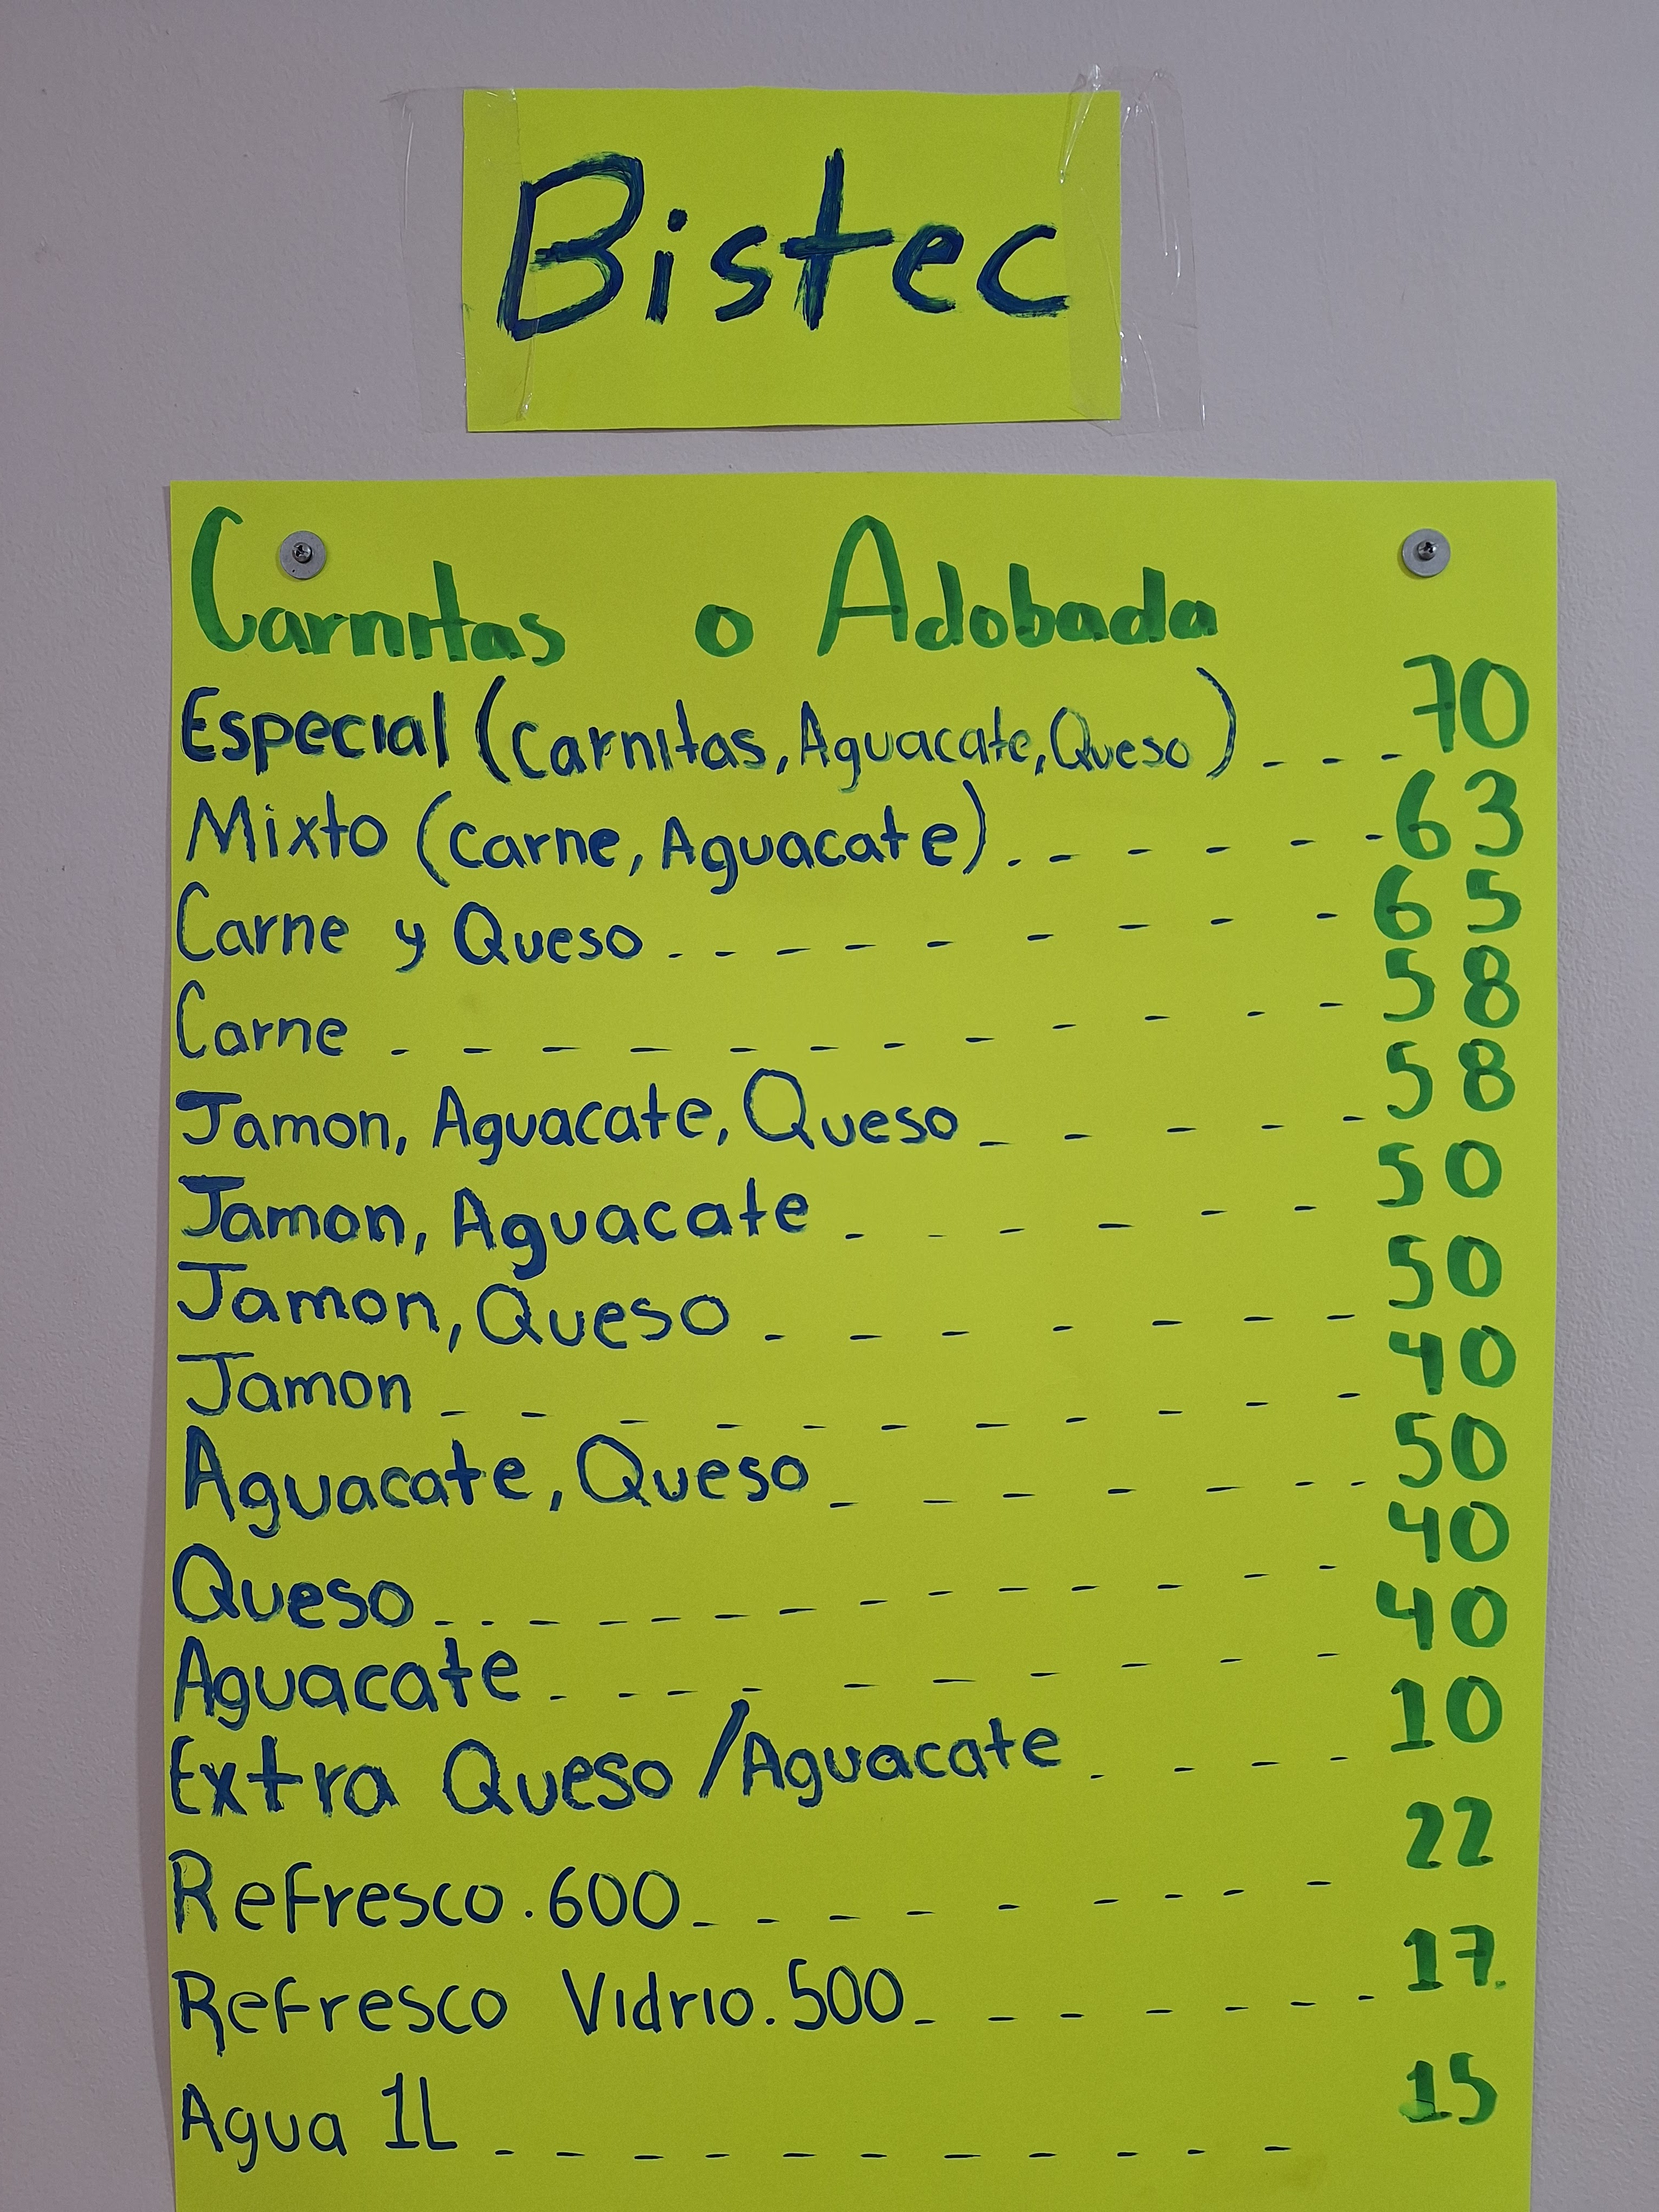 Bistec
Carnitas o Adobada
Especial (Carnitas, Aguacate, Queso) - - - 70
Mixto (Carne, Aguacate) - - - - - - 63
Carne y Queso - - - - - - - - - 65
Carne - - - - - - - - - - - - 58
Jamon, Aguacate, Queso - - - - - 58
Jamon, Aguacate - - - - - - 50
Jamon, Queso - - - - - - - 50
Jamon - - - - - - - - - - - 40
Aguacate, Queso - - - - - - - 50
Queso - - - - - - - - - - - - 40
Aguacate - - - - - - - - - - 40
Extra Queso / Aguacate - - - - 10
Refresco .600 - - - - - - - - 22
Refresco Vidrio .500 - - - - - - - 17.
Agua 1L - - - - - - - - - - - 15